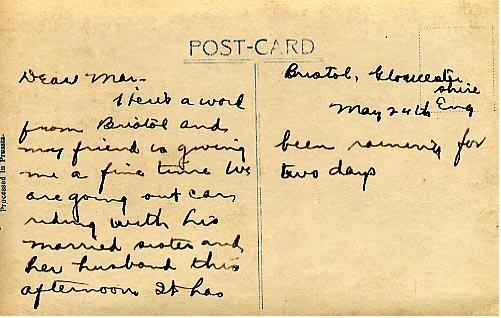 POST-CARD
Dear Mar-
Here's a word
from Bristol and
my friend is giving
me a fine time We
are going out car
riding with his
married sister and
her husband this
afternoon It has
Bristol, Gloucester
shire
Eng
May 24th
been raining for
two days
Processed in Prussia.